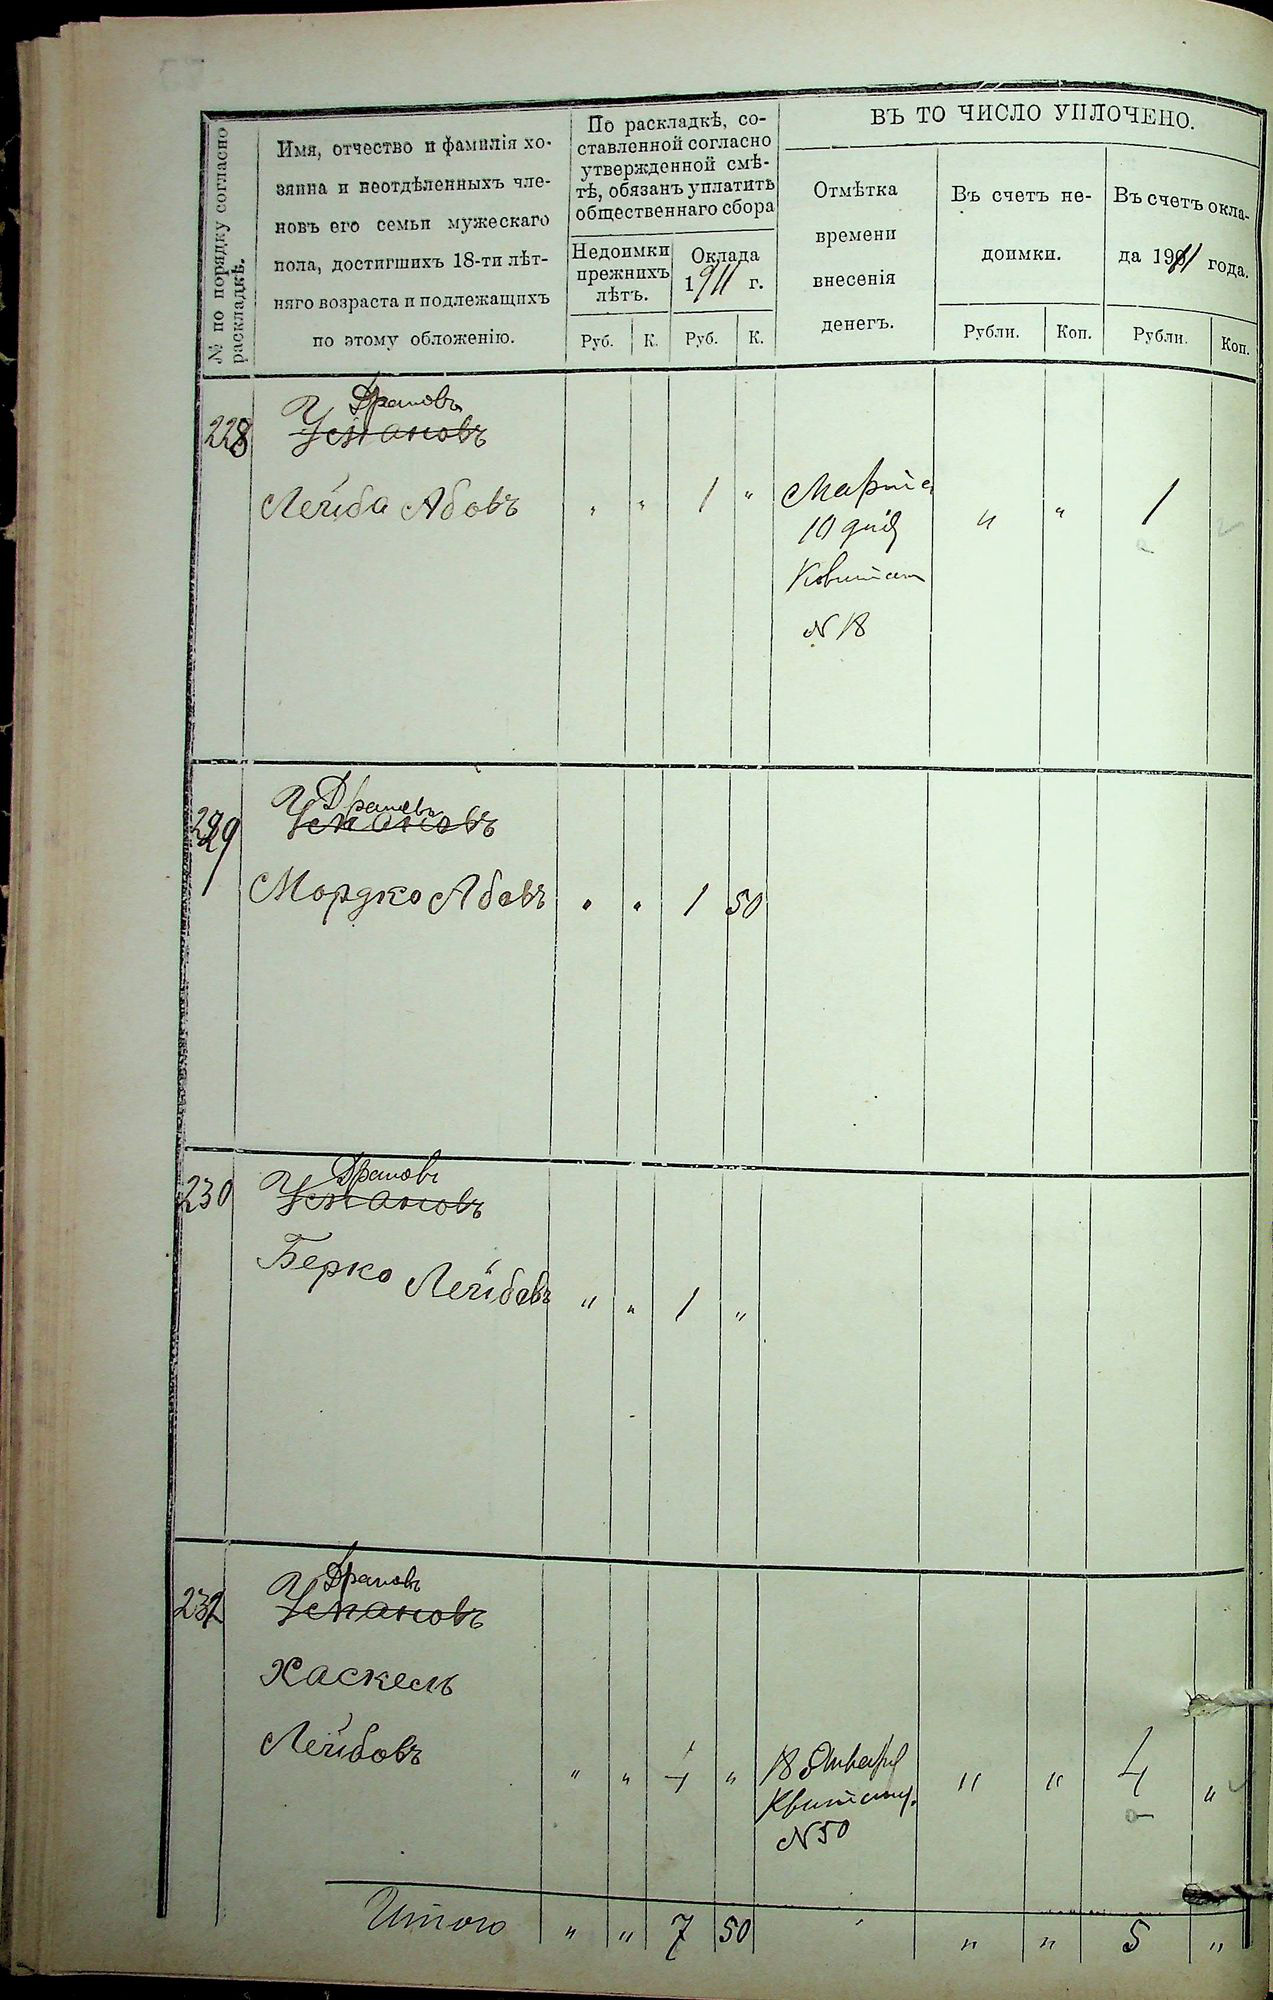 № по порядку согласно
раскладкѣ.
Имя, отчество и фамилія хо-
зяина и неотдѣленныхъ чле-
новъ его семьи мужескаго
пола, достигшихъ 18-ти лѣт-
няго возраста и подлежащихъ
по этому обложенію.
По раскладкѣ, со-
ставленной согласно
утвержденной смѣ-
тѣ, обязанъ уплатить
общественнаго сбора
Недоимки
прежнихъ
лѣтъ.
Оклада
1911 г.
Руб. К. Руб. К.
ВЪ ТО ЧИСЛО УПЛОЧЕНО.
Отмѣтка
времени
внесенія
денегъ.
Въ счетъ не-
доимки.
Въ счетъ окла-
да 1911 года.
Рубли. Коп. Рубли. Коп.
Драновъ
228 Установъ
Лейба Абовъ " " 1 " Марта " " 1
10 дня
Квитан
N 18
Драновъ
229 Установъ
Мордко Абовъ " " 1 50
Драновъ
230 Установъ
Берко Лейбовъ " " 1 "
Драновъ
Установъ
Хаскель
Лейбовъ " " 4 " 18 Января " " 4 "
Квитанц.
N 50
Итого " " 7 50 " " 5 "